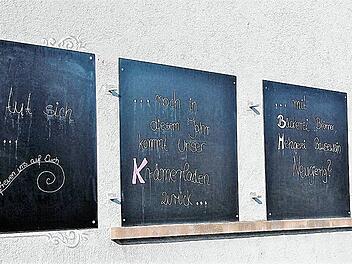 tut sich
...
freuen uns auf Euch
... noch in
diesem Jahr
kommt unser
Krämerladen
zurück ...
... mit
Bäckerei
Metzgerei
Neugierig?